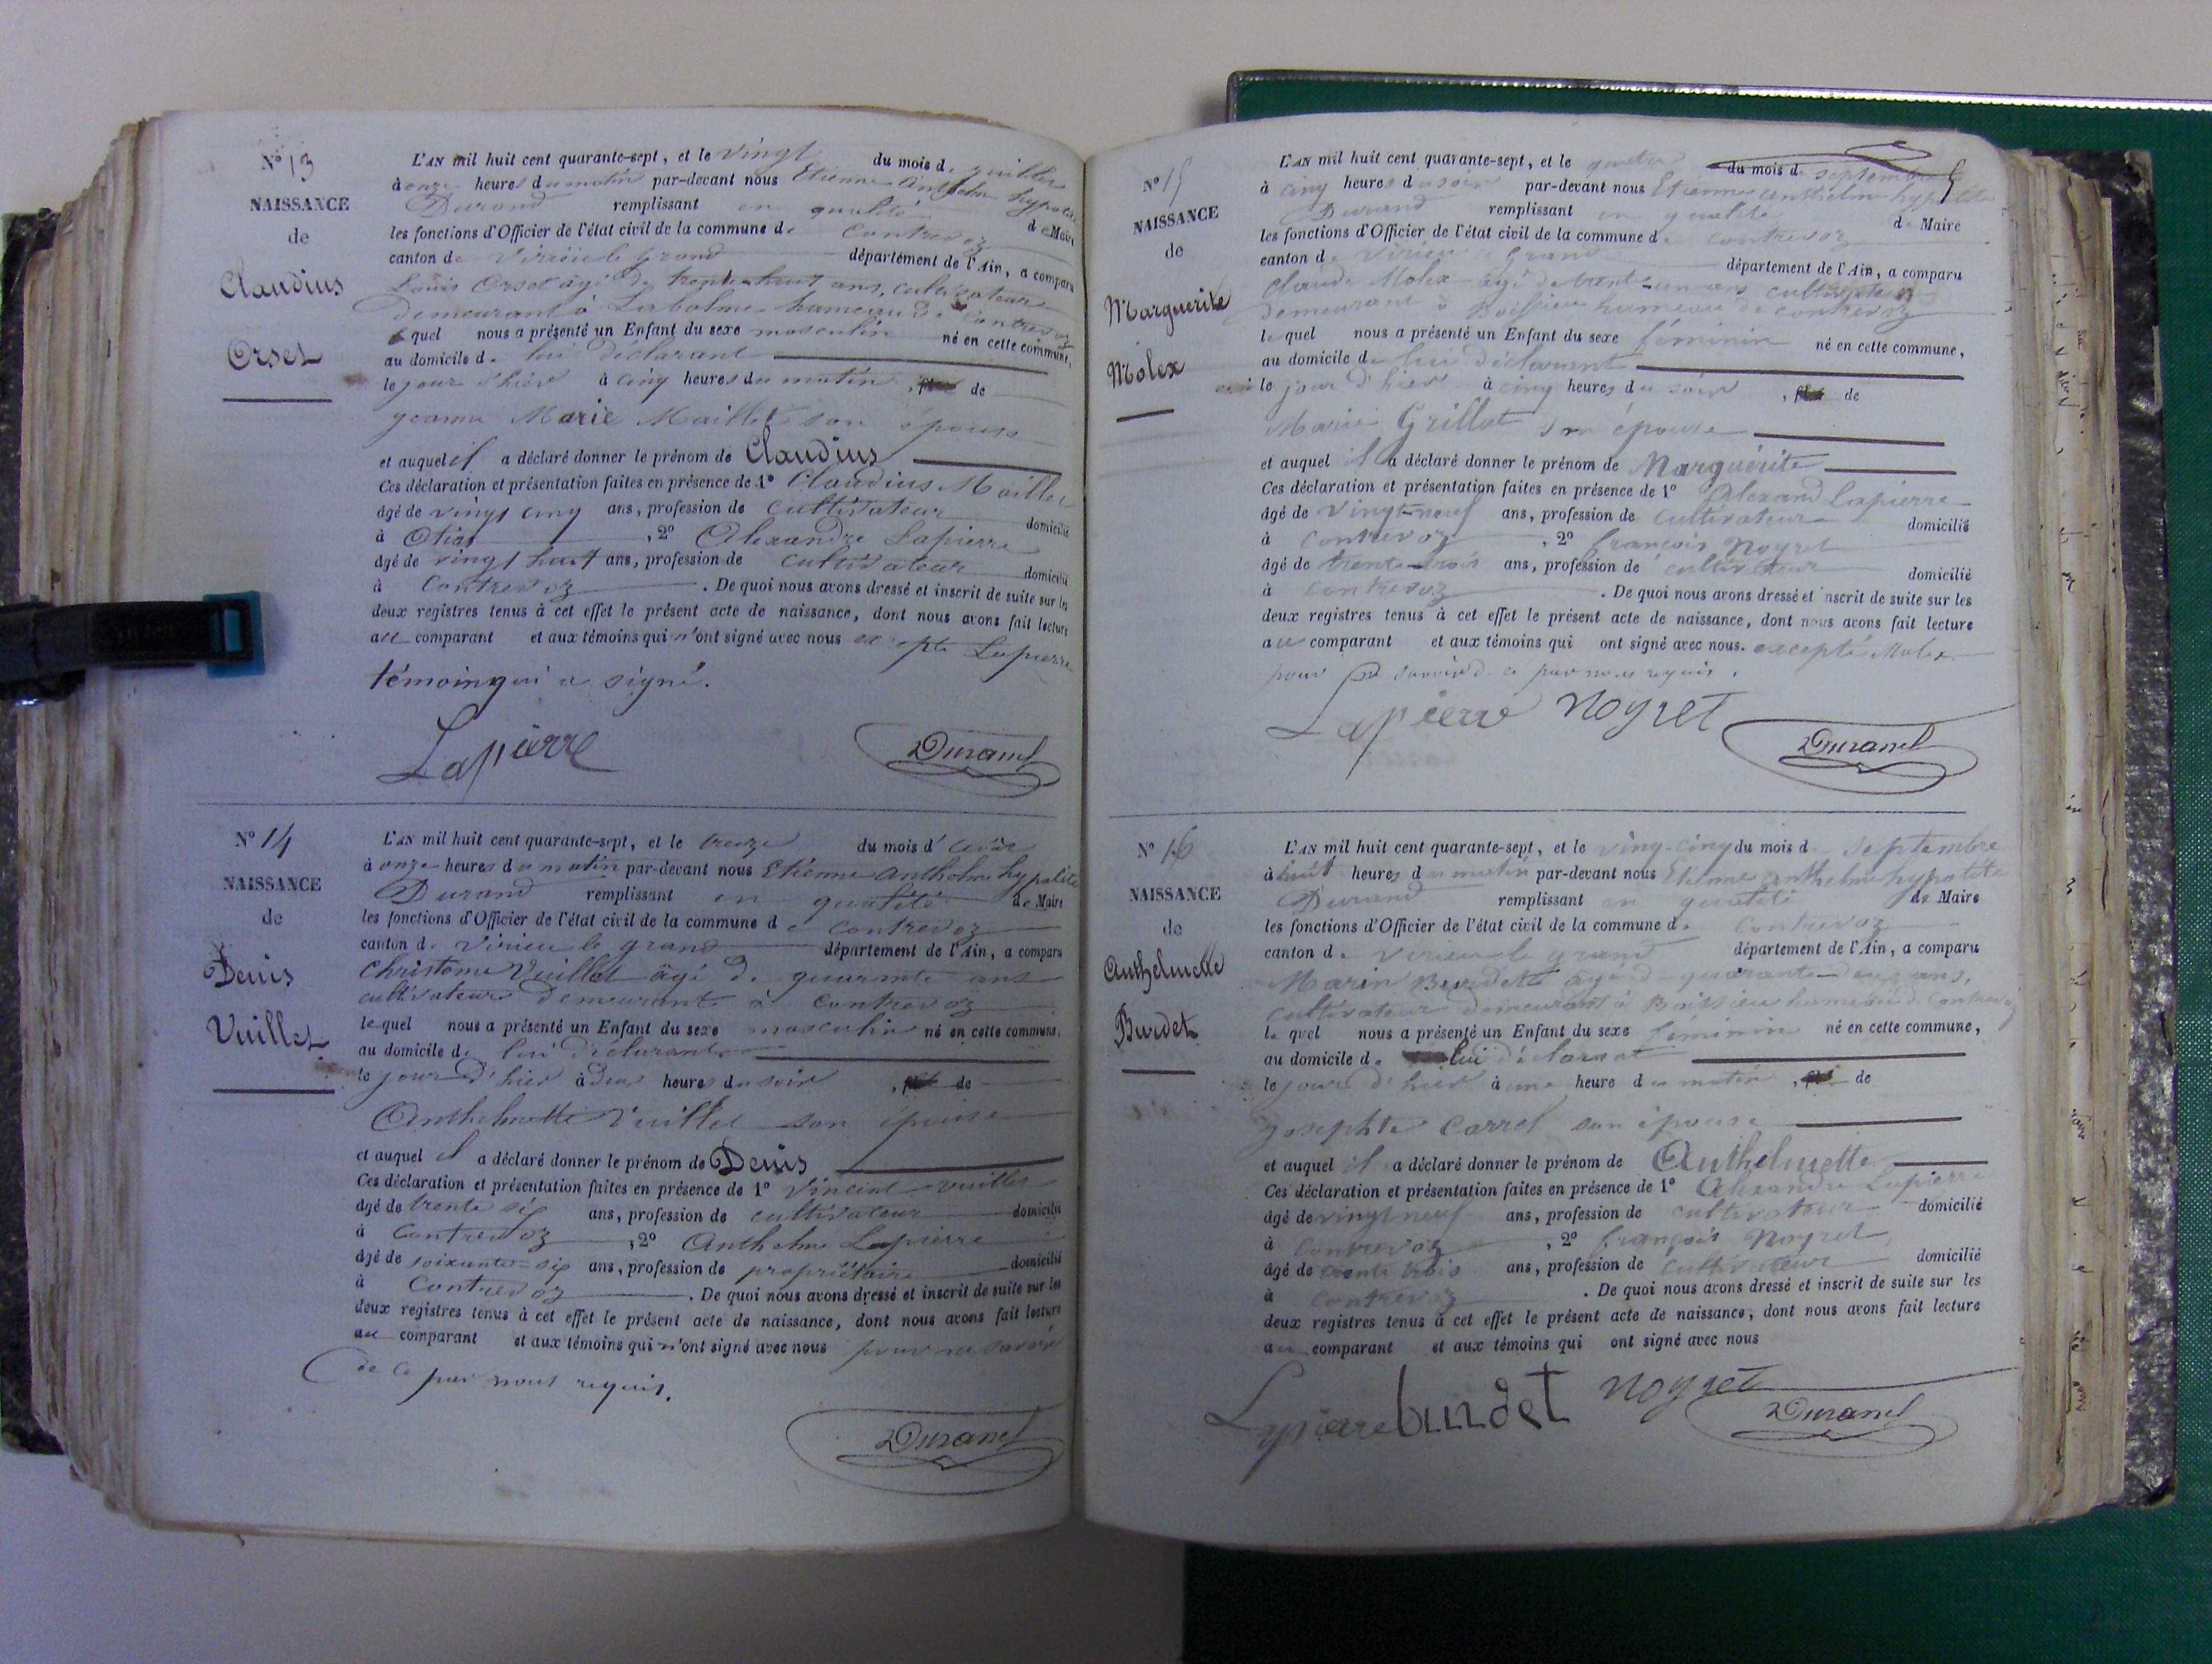 N° 13
NAISSANCE
de
Claudius
Orset
L'AN mil huit cent quarante-sept, et le vingt du mois de juillet
à onze heures du matin par-devant nous Etienne Anthelme hypolite
Durand remplissant en qualité de Maire
les fonctions d'Officier de l'état civil de la commune de Contrevoz
canton de Virieu le grand département de l'Ain, a comparu
Louis Orset âgé de trente huit ans, cultivateur
demeurant à Labalme hameau de Contrevoz
lequel nous a présenté un Enfant du sexe masculin né en cette commune,
au domicile de lui déclarant
le jour d'hier à cinq heures du matin, de
jeanne Marie Maillet son épouse
et auquel il a déclaré donner le prénom de Claudius
Ces déclaration et présentation faites en présence de 1° Claudius Maillet
âgé de vingt cinq ans, profession de cultivateur domicilié
à , 2° Alexandre Lapierre
âgé de vingt huit ans, profession de cultivateur domicilié
à Contrevoz. De quoi nous avons dressé et inscrit de suite sur les
deux registres tenus à cet effet le présent acte de naissance, dont nous avons fait lecture
au comparant et aux témoins qui n'ont signé avec nous excepté Lapierre
témoin qui a signé.
Lapierre Durand
N° 14
NAISSANCE
de
Denis
Vuillet
L'AN mil huit cent quarante-sept, et le treize du mois d'août
à onze heures du matin par-devant nous Etienne anthelme hypolite
Durand remplissant en qualité de Maire
les fonctions d'Officier de l'état civil de la commune de Contrevoz
canton de Virieu le grand département de l'Ain, a comparu
Christome Vuillet âgé de quarante ans
cultivateur demeurant à Contrevoz
lequel nous a présenté un Enfant du sexe masculin né en cette commune,
au domicile de lui déclarant
le jour d'hier à deux heures du soir, de
Anthelmette Vuillet son épouse
et auquel il a déclaré donner le prénom de Denis
Ces déclaration et présentation faites en présence de 1° Vincent Vuillet
âgé de trente six ans, profession de cultivateur domicilié
à Contrevoz, 2° Anthelme Lapierre
âgé de soixante-six ans, profession de propriétaire domicilié
à Contrevoz. De quoi nous avons dressé et inscrit de suite sur les
deux registres tenus à cet effet le présent acte de naissance, dont nous avons fait lecture
au comparant et aux témoins qui n'ont signé avec nous pour ne savoir
de ce par nous requis.
Durand
N° 15
NAISSANCE
de
Marguerite
Molex
L'AN mil huit cent quarante-sept, et le quatre du mois de septembre
à cinq heures du soir par-devant nous Etienne anthelme hypolite
Durand remplissant en qualité de Maire
les fonctions d'Officier de l'état civil de la commune de contrevoz
canton de Virieu le Grand département de l'Ain, a comparu
Claude Molex âgé de trente-un ans cultivateur
demeurant à Boissieu hameau de contrevoz
lequel nous a présenté un Enfant du sexe féminin né en cette commune,
au domicile de lui déclarant
le jour d'hier à cinq heures du soir, de
Marie Grillot son épouse
et auquel il a déclaré donner le prénom de Marguérite
Ces déclaration et présentation faites en présence de 1° Alexand Lapierre
âgé de vingt-neuf ans, profession de cultivateur domicilié
à Contrevoz, 2° françois Noyret
âgé de trente-trois ans, profession de cultivateur domicilié
à Contrevoz. De quoi nous avons dressé et inscrit de suite sur les
deux registres tenus à cet effet le présent acte de naissance, dont nous avons fait lecture
au comparant et aux témoins qui ont signé avec nous. excepté Molex
pour ne savoir de ce par nous requis.
Lapierre Noyret
Durand
N° 16
NAISSANCE
de
Anthelmette
Burdet
L'AN mil huit cent quarante-sept, et le ving-cinq du mois de septembre
à huit heures du matin par-devant nous Etienne anthelme hypolite
Durand remplissant en qualité de Maire
les fonctions d'Officier de l'état civil de la commune de Contrevoz
canton de Virieu le grand département de l'Ain, a comparu
Marin Burdet âgé de quarante-deux ans,
cultivateur demeurant à Boissieu hameau de Contrevoz
lequel nous a présenté un Enfant du sexe féminin né en cette commune,
au domicile de lui déclarant
le jour d'hier à une heure du matin, de
josephte Carrel son épouse
et auquel il a déclaré donner le prénom de Anthelmette
Ces déclaration et présentation faites en présence de 1° Alexandre Lapierre
âgé de vingt neuf ans, profession de cultivateur domicilié
à Contrevoz, 2° françois Noyret
âgé de trente trois ans, profession de cultivateur domicilié
à Contrevoz. De quoi nous avons dressé et inscrit de suite sur les
deux registres tenus à cet effet le présent acte de naissance, dont nous avons fait lecture
au comparant et aux témoins qui ont signé avec nous
Lapierre burdet Noyret
Durand